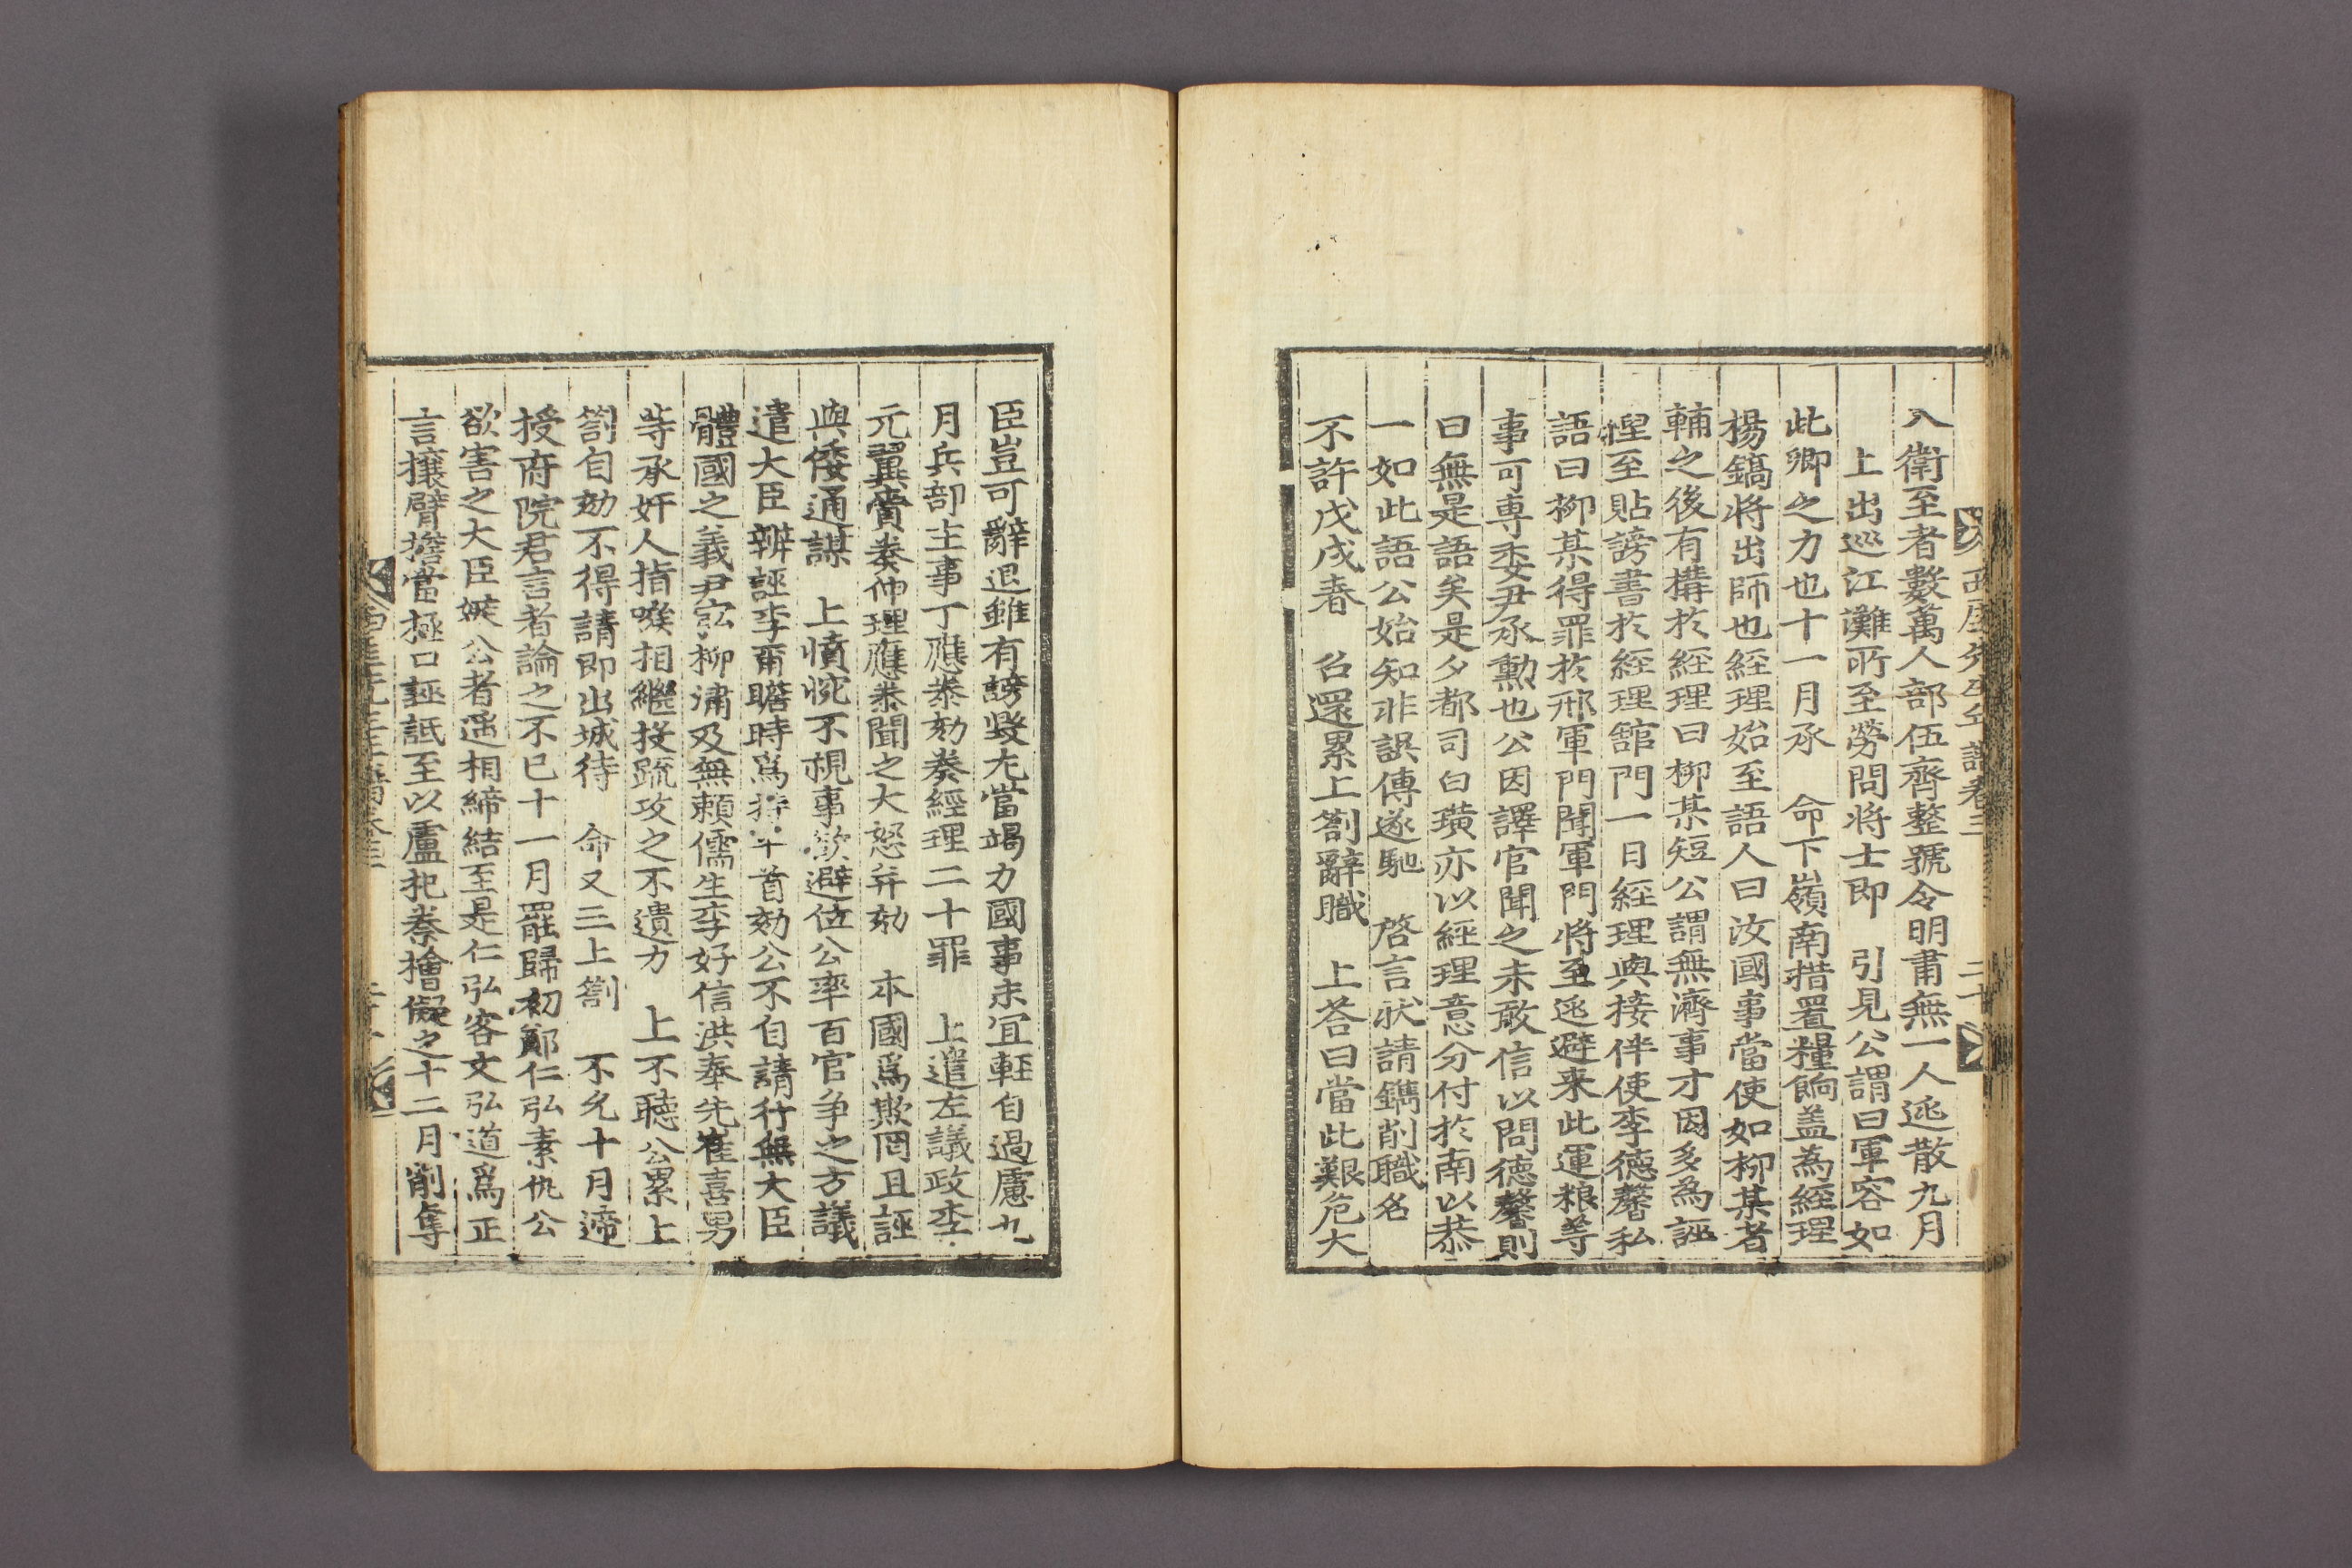 西厓先生年譜卷三 二十
入衛至者數萬人部伍齊整號令明肅無一人逃散九月
上出巡江灘所至勞問將士即 引見公謂曰軍容如
此卿之力也十一月承 命下嶺南措置糧餉盖為經理
楊鎬將出師也經理始至語人曰汝國事當使如柳某者
輔之後有構於經理曰柳某短公謂無濟事才因多為誣
捏至貼謗書於經理舘門一日經理與接伴使李德馨私
語曰柳某得罪於邢軍門聞軍門將至逃避来此運粮等
事可專委尹承勳也公因譯官聞之未敢信以問德馨則
曰無是語矣是夕都司白璜亦以經理意分付於南以恭
一如此語公始知非誤傳遂馳 啓言狀請鐫削職名
不許戊戌春 召還累上劄辭職 上答曰當此艱危大
臣豈可辭退雖有謗毀尤當竭力國事未宜輕自過慮九
月兵部主事丁應泰劾奏經理二十罪 上遣左議政李
元翼賫奏伸理應泰聞之大怒并劾 本國爲欺罔且誣
與倭通謀 上憤惋不視事欲避位公率百官爭之方議
遣大臣辨誣李爾瞻時爲持平首劾公不自請行無大臣
體國之義尹宖柳潚及無頼儒生李好信洪奉先崔喜男
等承奸人指嗾相繼投疏攻之不遺力 上不聽公累上
劄自劾不得請即出城待 命又三上劄 不允十月遞
授府院君言者論之不已十一月罷歸初鄭仁弘素仇公
欲害之大臣嫉公者遥相締結至是仁弘客文弘道爲正
言攘臂擔當極口誣詆至以盧杞秦檜儗之十二月削奪